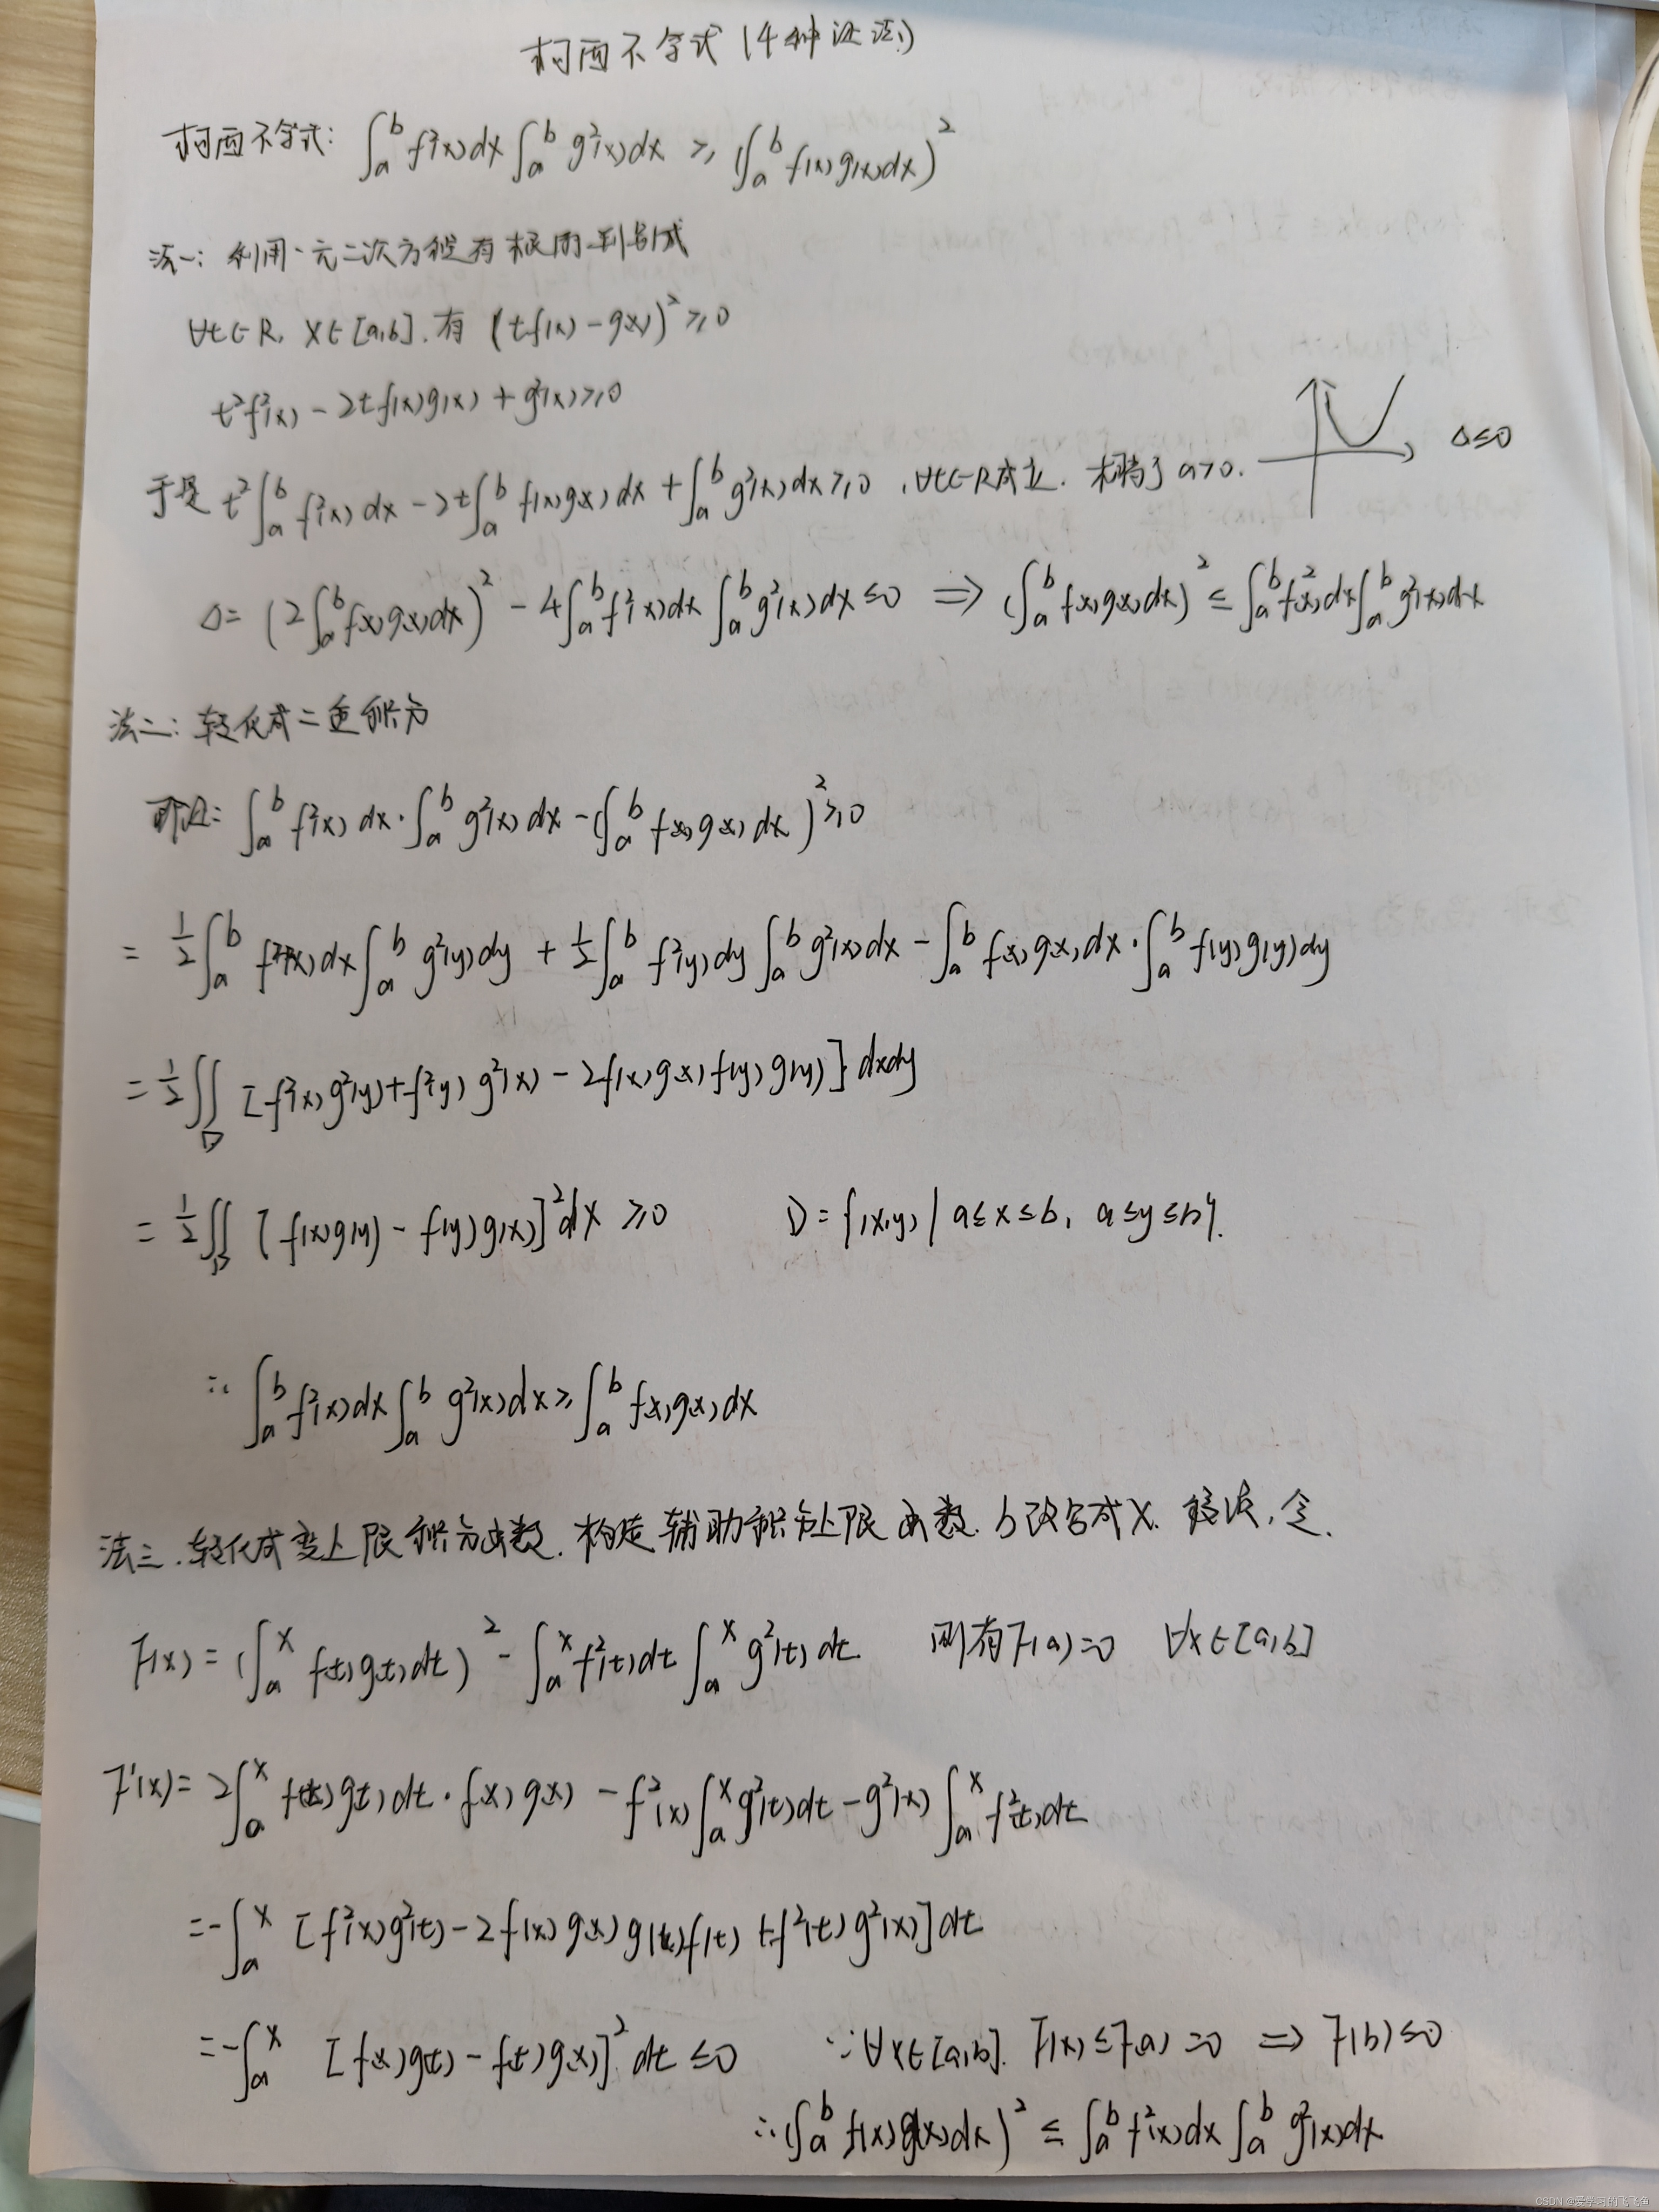 柯西不等式(4种证法)
柯西不等式: ∫_a^b f²(x)dx ∫_a^b g²(x)dx ≥ (∫_a^b f(x)g(x)dx)²
法一: 利用一元二次方程有根的判别式
∀t∈R, x∈[a,b]. 有 (tf(x)-g(x))²≥0
t²f²(x)-2tf(x)g(x)+g²(x)≥0
于是 t²∫_a^b f²(x)dx-2t∫_a^b f(x)g(x)dx+∫_a^b g²(x)dx≥0, ∀t∈R成立. 相当于a>0. Δ≤0
Δ=(2∫_a^b f(x)g(x)dx)²-4∫_a^b f²(x)dx∫_a^b g²(x)dx≤0 ⇒ (∫_a^b f(x)g(x)dx)²≤∫_a^b f²(x)dx∫_a^b g²(x)dx
法二: 转化成二重积分
即证: ∫_a^b f²(x)dx·∫_a^b g²(x)dx-(∫_a^b f(x)g(x)dx)²≥0
= 1/2∫_a^b f²(x)dx∫_a^b g²(y)dy+1/2∫_a^b f²(y)dy∫_a^b g²(x)dx-∫_a^b f(x)g(x)dx·∫_a^b f(y)g(y)dy
= 1/2∬_D [f²(x)g²(y)+f²(y)g²(x)-2f(x)g(x)f(y)g(y)]dxdy
= 1/2∬_D [f(x)g(y)-f(y)g(x)]²dx≥0 D={(x,y)|a≤x≤b, a≤y≤b}.
∴ ∫_a^b f²(x)dx∫_a^b g²(x)dx≥∫_a^b f(x)g(x)dx
法三. 转化成变上限积分函数. 构造辅助积分上限函数. b改写成x. 令.
F(x)=(∫_a^x f(t)g(t)dt)²-∫_a^x f²(t)dt∫_a^x g²(t)dt. 则有F(a)=0 ∀x∈[a,b]
F'(x)=2∫_a^x f(t)g(t)dt·f(x)g(x)-f²(x)∫_a^x g²(t)dt-g²(x)∫_a^x f²(t)dt
=-∫_a^x [f²(x)g²(t)-2f(x)g(x)g(t)f(t)+f²(t)g²(x)]dt
=-∫_a^x [f(x)g(t)-f(t)g(x)]²dt≤0 ∵∀x∈[a,b]. F(x)≤F(a)=0 ⇒ F(b)≤0
∴(∫_a^b f(x)g(x)dx)²≤∫_a^b f²(x)dx∫_a^b g²(x)dx
CSDN @爱学习的飞飞鱼